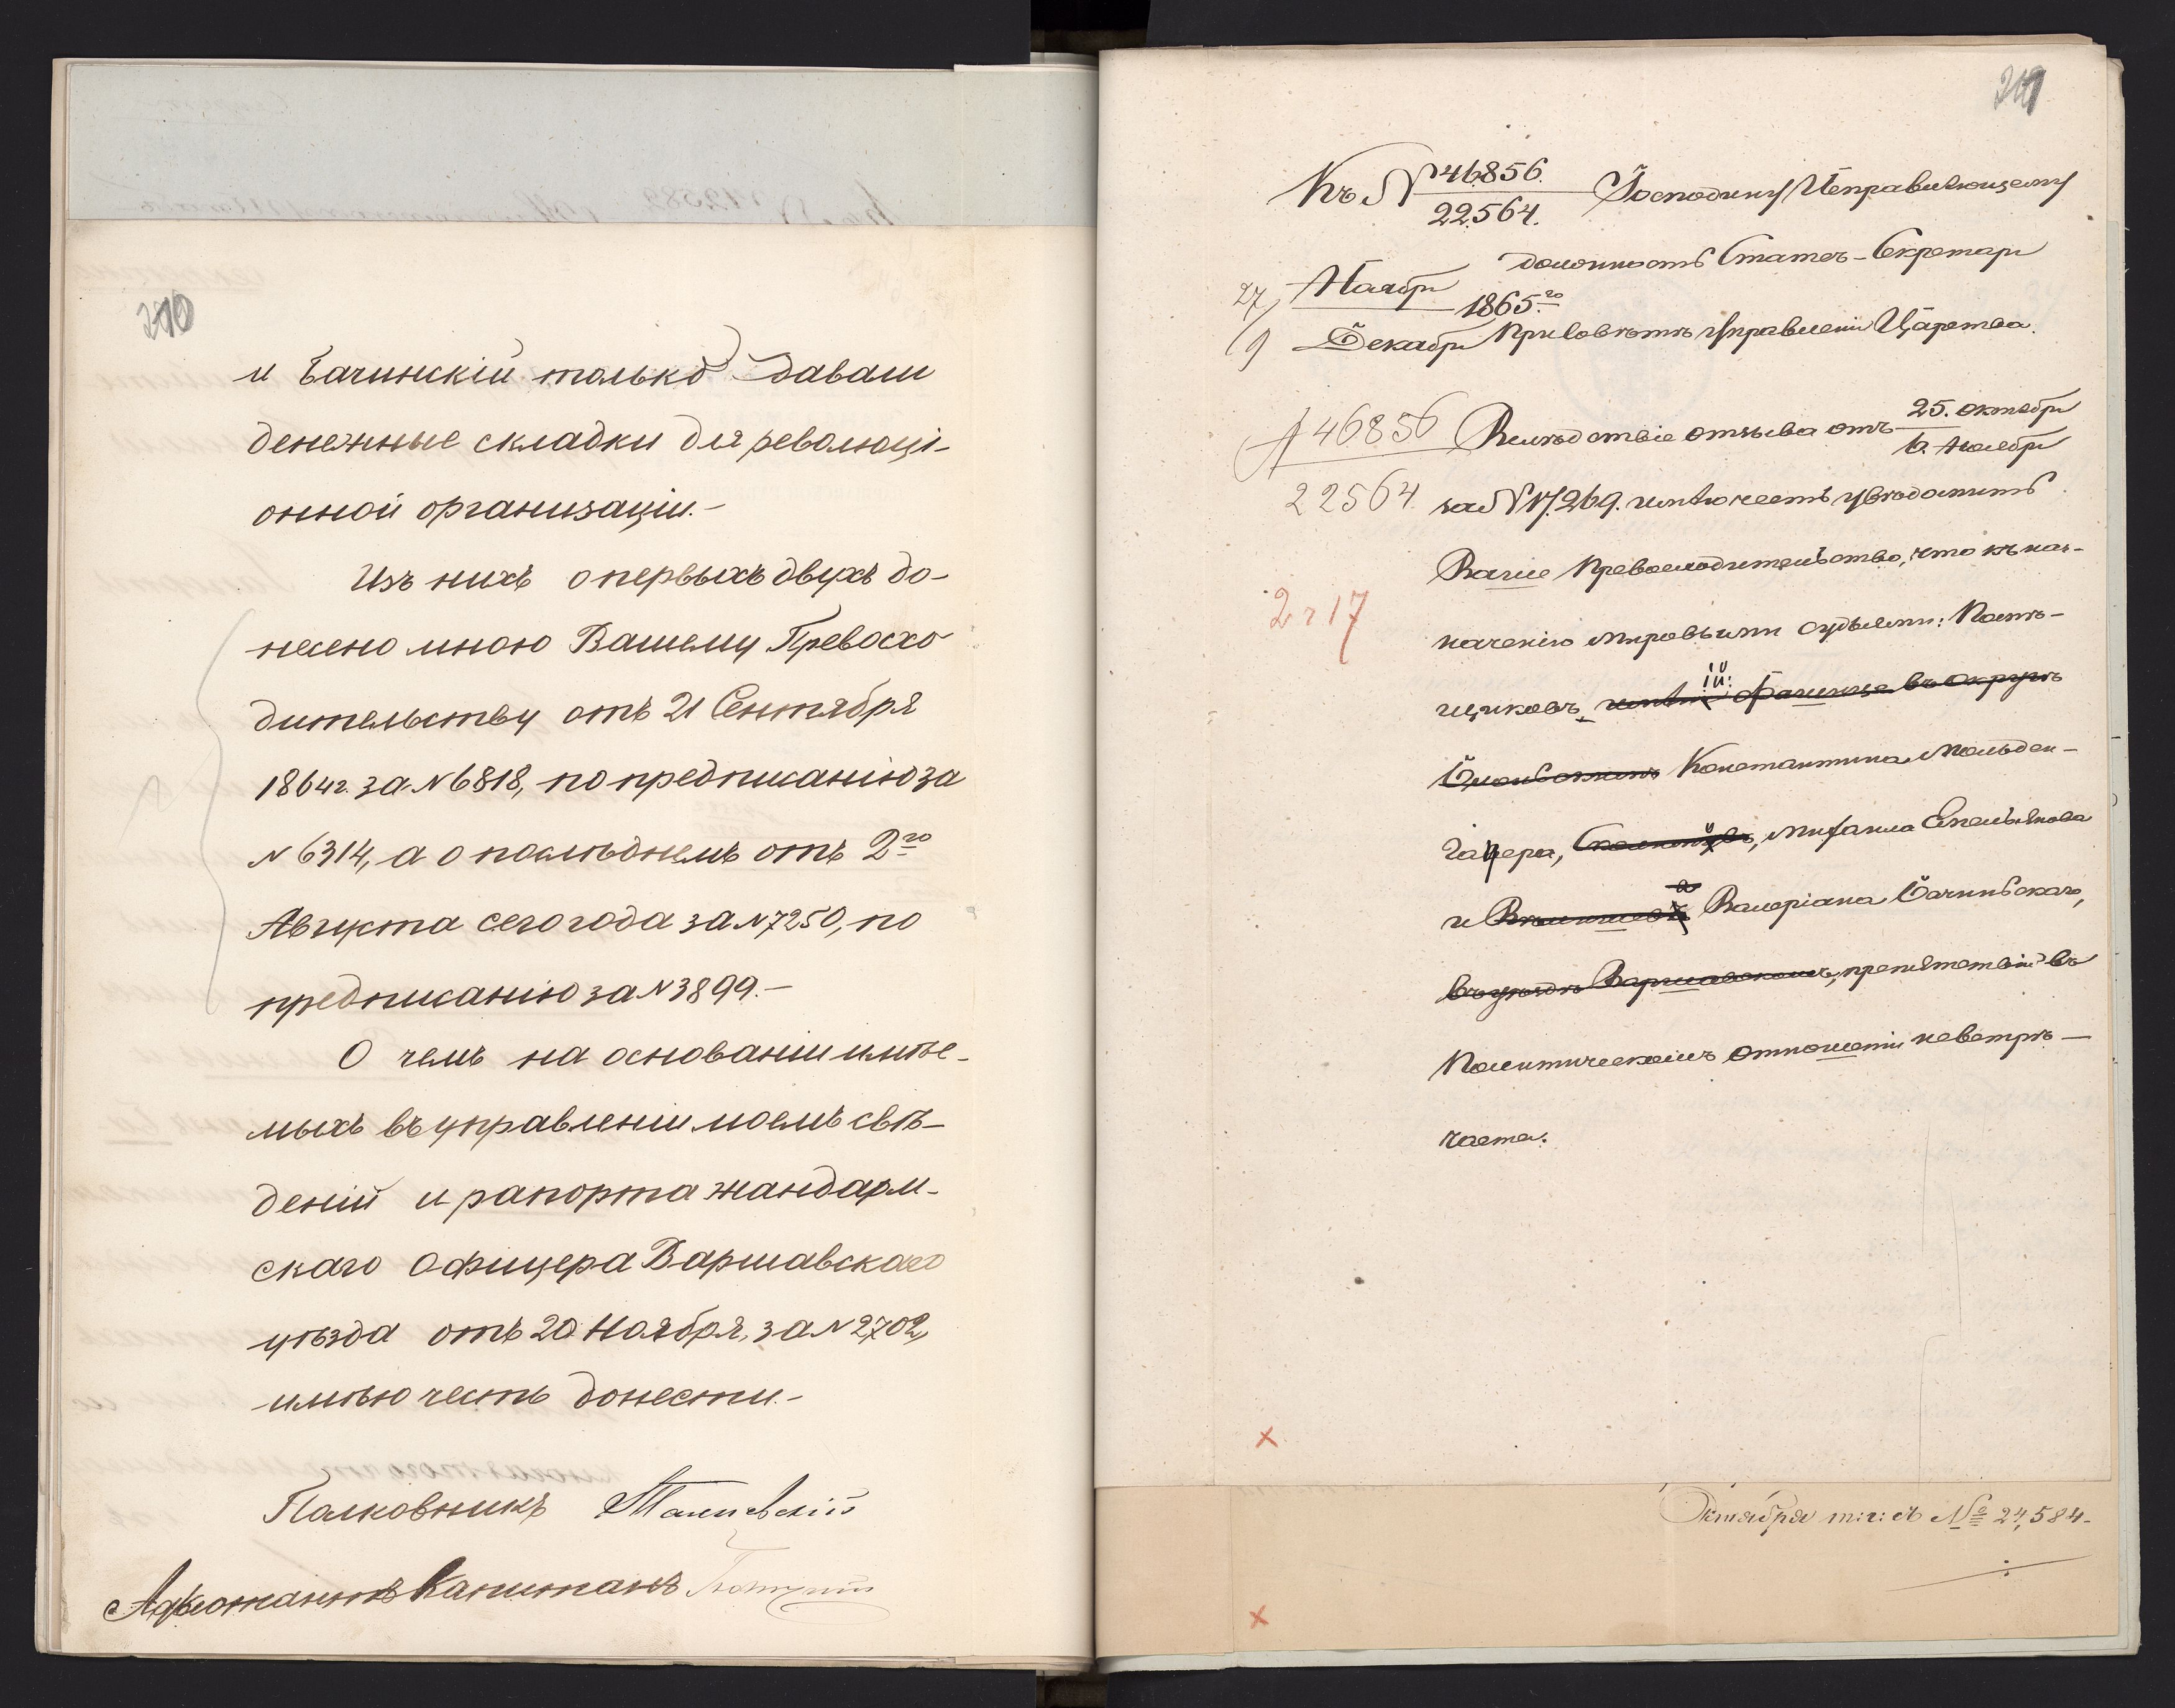 210
и Бачинскій только давали
денежные складки для революці-
онной организаціи.-
Изъ нихъ о первыхъ двухъ до-
несено мною Вашему Превосхо
дительству отъ 21 Сентября
1864г. за №6818, по предписанію за
№ 6314, а о послѣднемъ отъ 2го
Августа сего года за №7250, по
предписанію за №3899.-
О чемъ на основаніи имѣе-
мыхъ въ управленіи моемъ свѣ-
деній и рапорта жандарм-
скаго Офицера Варшавскаго
уѣзда отъ 20 Ноября, за №2702,
имѣю честь донести.-
Полковникъ
Адъютантъ Капитанъ
Къ № 46856. Господину Исправляющему
22564.
должность Статсъ-Секретаря
27 Ноября 1865го
9 Декабря При Совѣтѣ Управленія Царства.
46856 Вслѣдствіе отзыва отъ 25. октября
6. Ноября
22564. за № 17.269. имѣю честь увѣдомить
Ваше Превосходительство, что къ наз-
2 г 17
наченію мировыми судьями: Помѣ-
щиковъ, въ округѣ
Константина Мольден-
гауера, Михаила Емельянова
и Валеріана Бачинскаго,
въ уѣздѣ Варшавскомъ, препятствій въ
Политическомъ отношеніи не встрѣ-
чаета.
Октября т:г: съ № 24,584.